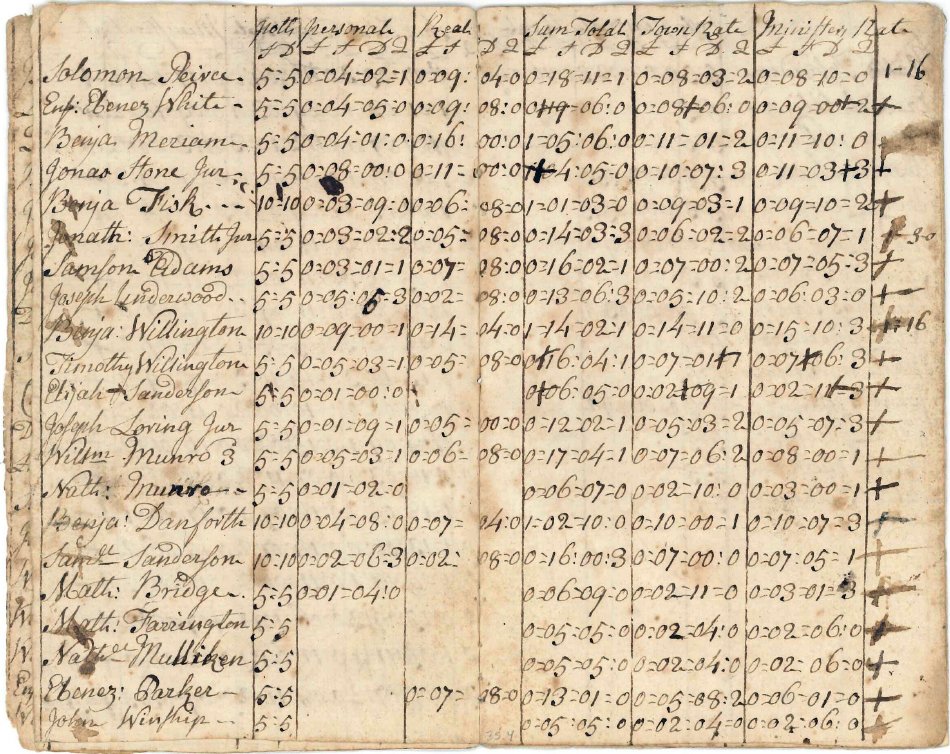 Polls Personal Real Sum Total Town Rate Ministers Rate
£ D £ £ D Q £ £ D Q £ £ D Q £ £ D Q £ £ D Q
Solomon Peirce - 5=5 0=04=02=1 0=09: 04=0 0=18=11=1 0=08=03=2 0=08=10=0 1-16
Ens: Ebenez White - 5=5 0=04=05:0 0=09: 08:0 0=19=06:0 0=08=06:0 0=09=00=2 +
Benja Meriam - 5=5 0=04=01:0 0=16: 00:0 1=05:06:0 0=11=01=2 0=11=10:0
Jonas Stone Jur - 5=5 0=08=00:0 0=11= 00:0 1=04:05=0 0=10=07:3 0=11=03=3 +
Benja Fisk - - - 10=10 0=03=09:0 0=06: 08=0 1=01=03=0 0=09=03=1 0=09=10=2 +
Jonath: Smith Jur 5=5 0=03=02:2 0=05= 08:0 0=14=03=3 0=06=02=2 0=06=07=1 3-0
Samson Adams 5=5 0=03=01=1 0=07= 08:0 0=16=02=1 0=07=00:2 0=07=05=3 +
Joseph Underwood - - 5=5 0=05:05=3 0=02= 08:0 0=13=06:3 0=05=10:2 0=06:03=0 +
Benja: Willington 10=10 0=09=00=1 0=14= 04:0 1=14=02=1 0=14=11=0 0=15=10:3 1-16
Timothy Willington 5=5 0=05=03=1 0=05= 08=0 0=16:04:1 0=07=01=1 0=07=06:3 +
Elijah Sanderson - 5=5 0=01=00:0 0=06:05=0 0=02=09=1 0=02=11=3 +
Joseph Loring Jur 5=5 0=01=09=1 0=05= 00:0 0=12=02=1 0=05=03=2 0=05=07=3 +
Willm Munro 3 5=5 0=05=03=1 0=06= 08=0 0=17=04=1 0=07=06:2 0=08=00=1 +
Nath: Munro - - 5=5 0=01=02=0 0=06=07=0 0=02=10:0 0=03=00=1 +
Benja: Danforth 10=10 0=04=08:0 0=07= 04:0 1=02=10:0 0=10=00=1 0=10=07=3 +
Samll Sanderson 10=10 0=02=06=3 0=02: 08=0 0=16:00:3 0=07=00:0 0=07:05=1 +
Math: Bridge - 5=5 0=01=04:0 0=06=09=0 0=02=11=0 0=03=01=3 +
Math: Farrington 5=5 0=05=05:0 0=02=04:0 0=02=06:0 +
Nathll Mulliken 5=5 0=05=05:0 0=02=04:0 0=02=06=0 +
Ebenez: Parker - 5=5 0=07= 08=0 0=13=01=0 0=05=08:2 0=06=01=0 +
John Winship - - 5=5 0=05:05:0 0=02=04=0 0=02=06:0 +